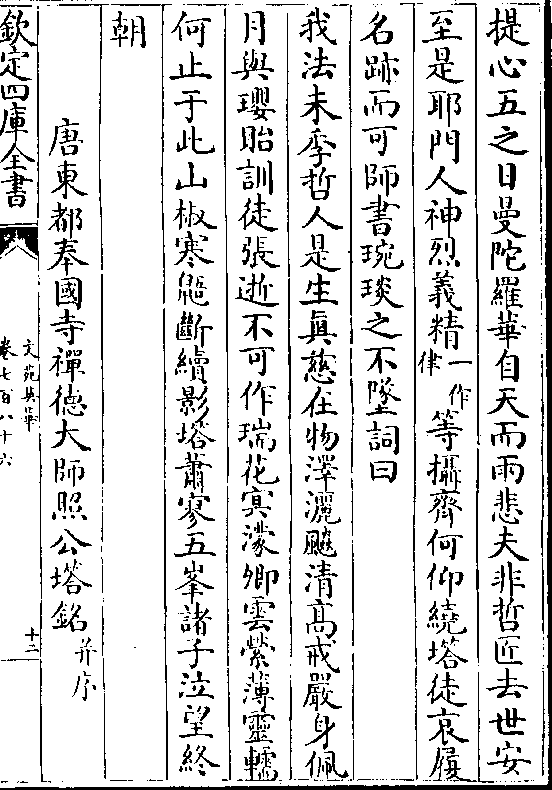 提心五之日曼陀羅華自天而雨悲夫非哲匠去世安
至是耶門人神烈義精一作律等攝齊何仰繞塔徒哀履
名跡而可師書琬琰之不墜詞曰
我法末季哲人是生真慈在物澤灑飈清高戒嚴身佩
月與瓔貽訓徒張逝不可作瑞花㝠濛卿雲縈薄靈轜
何止于此山椒寒鼯斷續影塔蕭寥五峯諸子泣望終
朝
唐東都奉國寺禪德大師照公塔銘并序
欽定四庫全書
文苑英華
卷七百八十六
十二